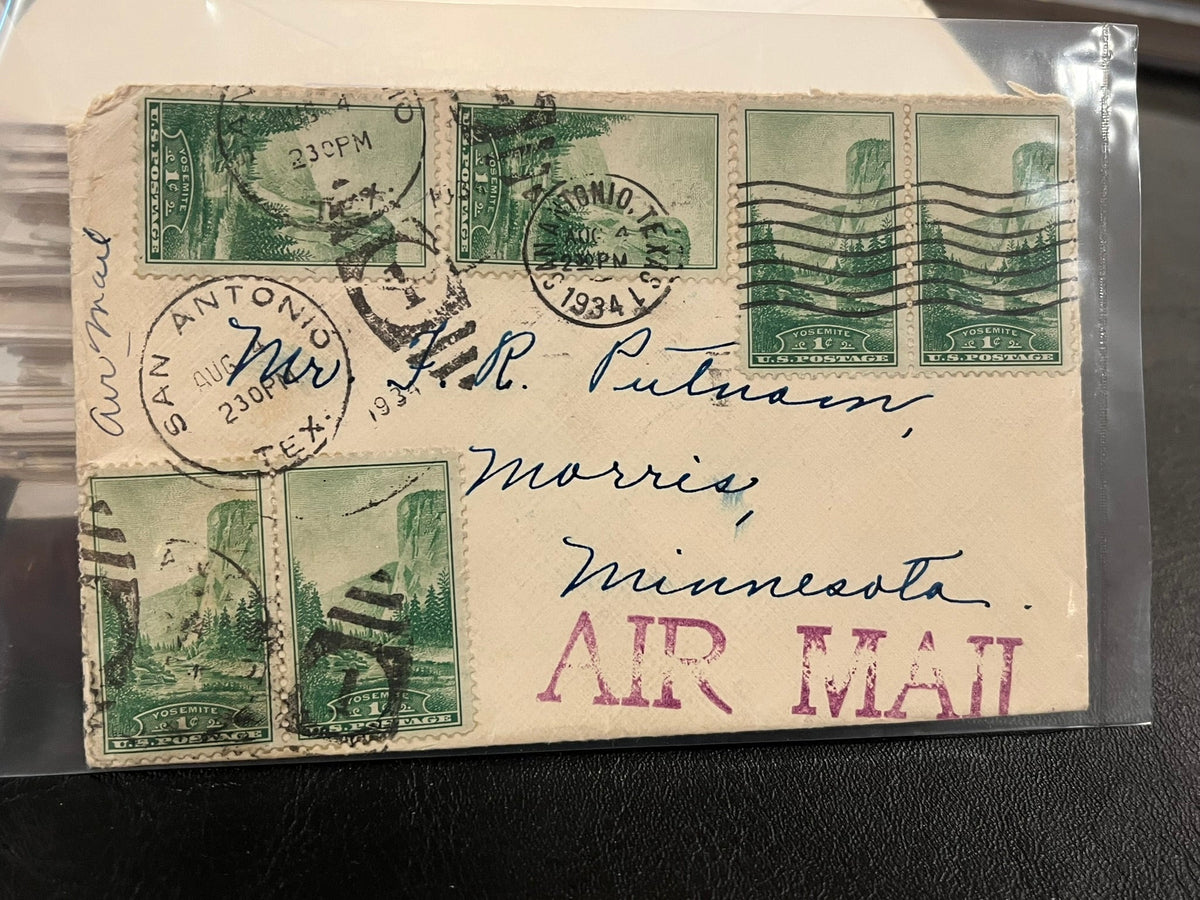 YOSEMITE
1¢
U.S.POSTAGE
YOSEMITE
1¢
U.S.POSTAGE
AUG 4
230PM
TEX.
SAN ANTONIO, TEXAS 1
AUG 4
230PM
1934
YOSEMITE
1¢
U.S.POSTAGE
YOSEMITE
1¢
U.S.POSTAGE
Air Mail
SAN ANTONIO
AUG
230PM
TEX.
1934
Mr. F. R. Putnam,
Morris,
Minnesota.
AIR MAIL
YOSEMITE
1¢
U.S.POSTAGE
YOSEMITE
1¢
U.S.POSTAGE